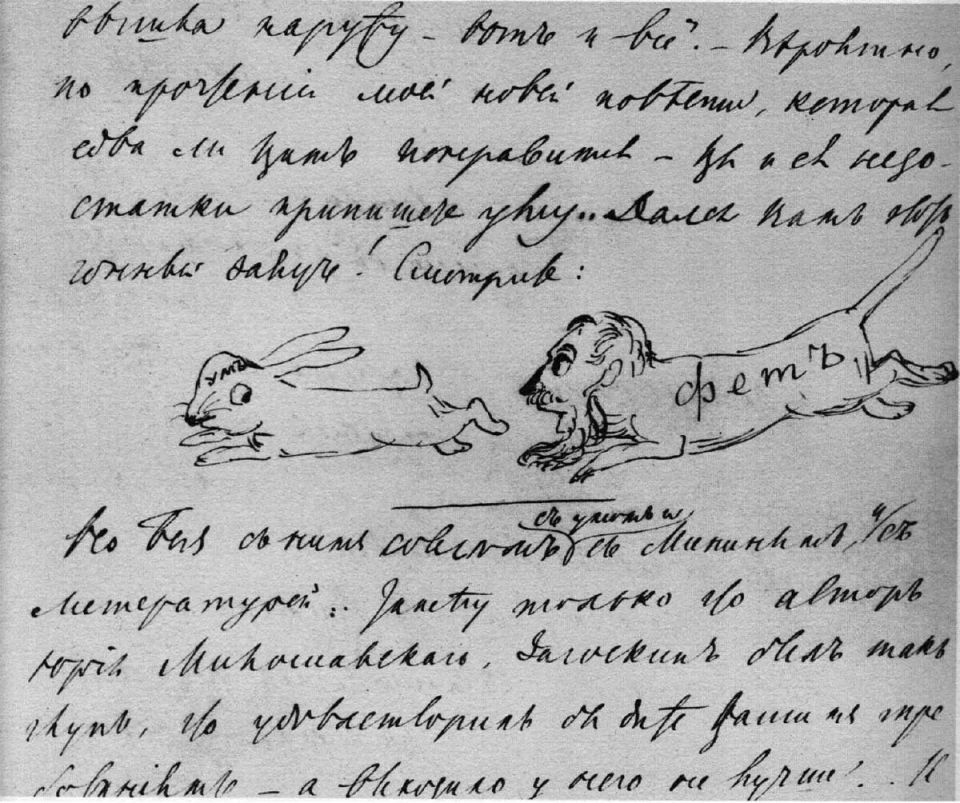 наружу – вотъ и все". – Вѣроятно,
по прочтеніи моей новой повѣсти, которая
едва ли Вамъ понравится – Вы и ея недо-
статки припишете уму.. Дался Вамъ этотъ
заяцъ! Смотрите:
умъ
фетъ
съ умомъ и
Богъ съ нимъ совсѣмъ съ Мининымъ, и съ
литературой.. Замѣчу только что авторъ
Юрія Милославскаго, Загоскинъ былъ такъ
глупъ, что удовлетворилъ бы даже Вашимъ тре
бованіямъ – а выходило у него не лучше!.. И